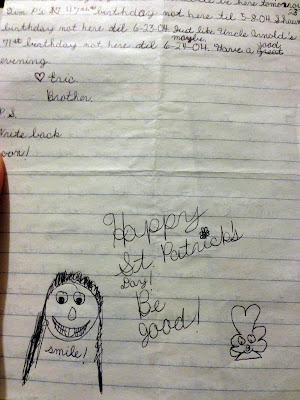 be here tomorrow
birthday not here til 5-8-04.
birthday not here til 6-23-04 Just like Uncle Arnold's
71st birthday not here til maybe 6-24-04. Have a good
evening
♡ Eric
Brother.
P.S.
Write back
soon!
Happy
St. Patrick's
Day!
Be
good!
smile!